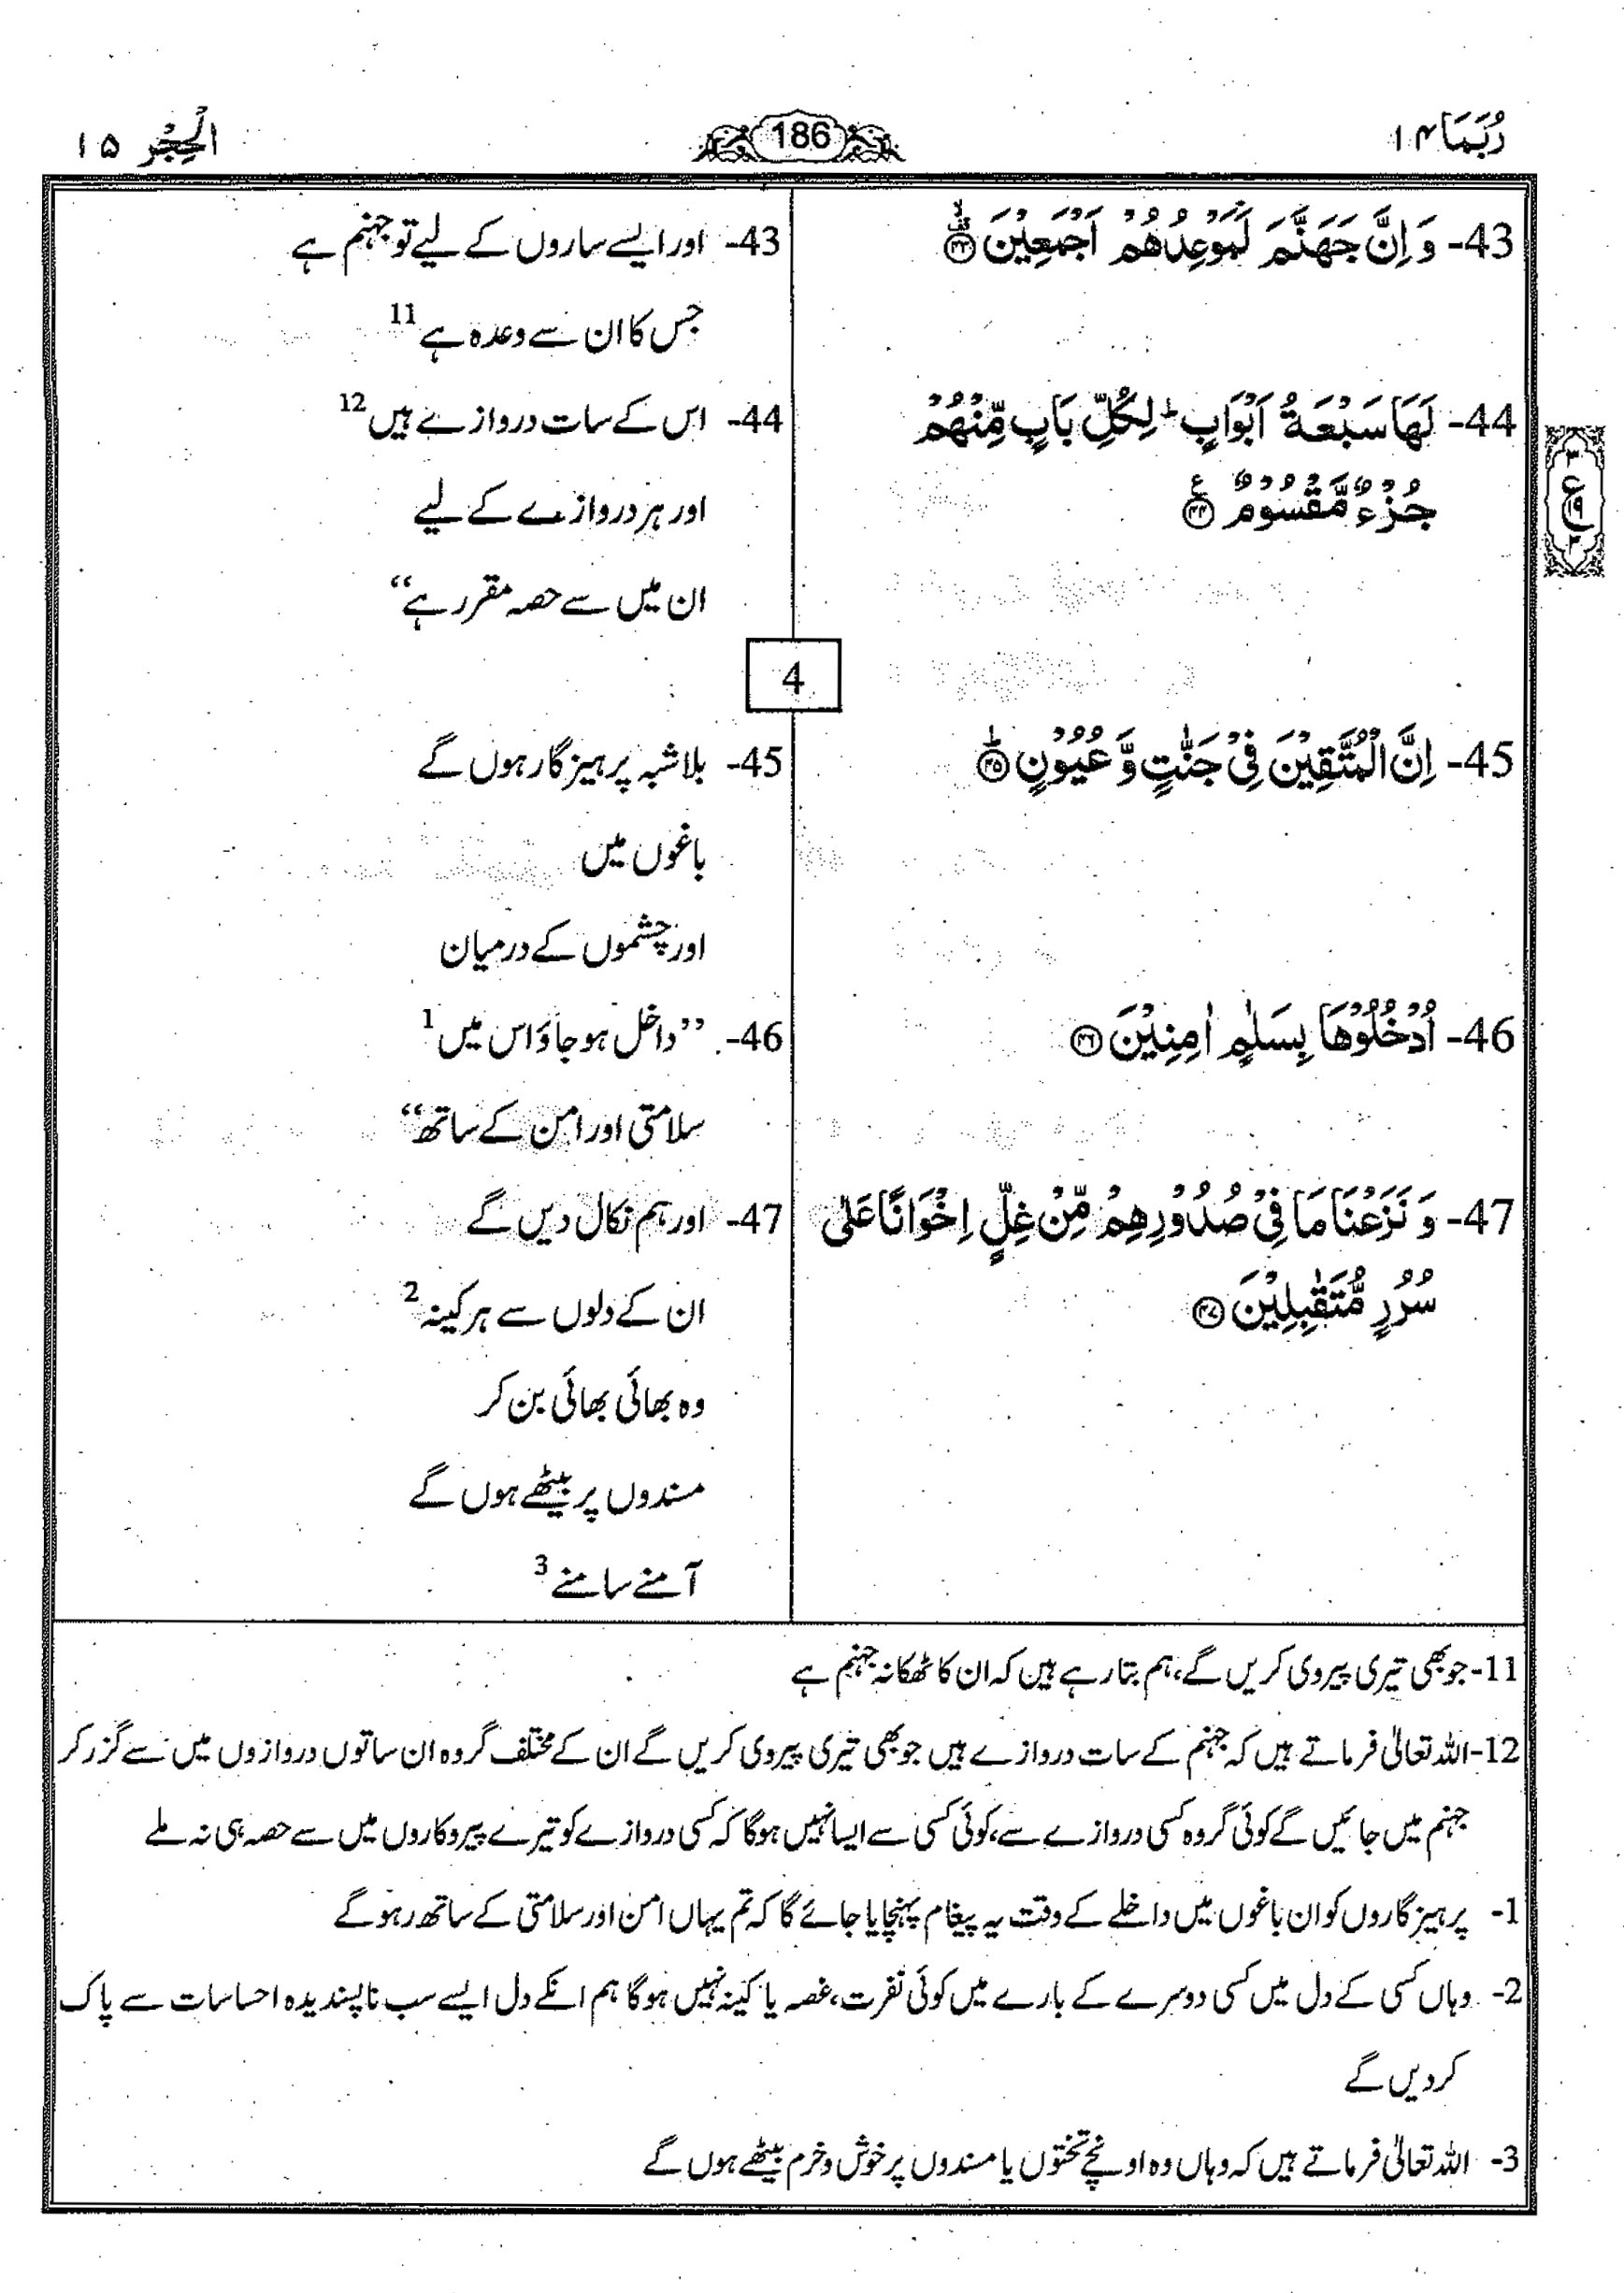 رُبَمَا ۱۴
186
الْحِجْر ۱۵
43- وَ اِنَّ جَهَنَّمَ لَمَوْعِدُهُمْ اَجْمَعِیْنَ ﴿۴۳﴾
44- لَهَا سَبْعَةُ اَبْوَابٍ ؕ لِكُلِّ بَابٍ مِّنْهُمْ
جُزْءٌ مَّقْسُوْمٌ ﴿۴۴﴾
ع
۳
۱۹
۳
45- اِنَّ الْمُتَّقِیْنَ فِیْ جَنّٰتٍ وَّ عُیُوْنٍ ﴿۴۵﴾
46- اُدْخُلُوْهَا بِسَلٰمٍ اٰمِنِیْنَ ﴿۴۶﴾
47- وَ نَزَعْنَا مَا فِیْ صُدُوْرِهِمْ مِّنْ غِلٍّ اِخْوَانًا عَلٰی
سُرُرٍ مُّتَقٰبِلِیْنَ ﴿۴۷﴾
43- اور ایسے ساروں کے لیے تو جہنم ہے
جس کا ان سے وعدہ ہے 11
44- اس کے سات دروازے ہیں 12
اور ہر دروازے کے لیے
ان میں سے حصہ مقرر ہے“
4
45- بلاشبہ پرہیزگار ہوں گے
باغوں میں
اور چشموں کے درمیان
46- ”داخل ہو جاؤ اس میں 1
سلامتی اور امن کے ساتھ“
47- اور ہم نکال دیں گے
ان کے دلوں سے ہر کینہ 2
وہ بھائی بھائی بن کر
مسندوں پر بیٹھے ہوں گے
آمنے سامنے 3
11- جو بھی تیری پیروی کریں گے، ہم بتا رہے ہین کہ ان کا ٹھکانہ جہنم ہے
12- اللہ تعالیٰ فرماتے ہیں کہ جہنم کے سات دروازے ہیں جو بھی تیری پیروی کریں گے ان کے مختلف گروہ ان ساتوں دروازوں میں سے گزر کر
جہنم میں جائیں گے کوئی گروہ کسی دروازے سے، کوئی کسی سے ایسا نہیں ہوگا کہ کسی دروازے کو تیرے پیروکاروں میں سے حصہ ہی نہ ملے
1- پرہیزگاروں کو ان باغوں میں داخلے کے وقت یہ پیغام پہنچایا جائے گا کہ تم یہاں امن اور سلامتی کے ساتھ رہو گے
2- وہاں کسی کے دل میں کسی دوسرے کے بارے میں کوئی نفرت، غصہ یا کینہ نہیں ہوگا ہم انکے دل ایسے سب ناپسندیدہ احساسات سے پاک
کردیں گے
3- اللہ تعالیٰ فرماتے ہیں کہ وہاں وہ اونچے تختوں یا مسندوں پر خوش و خرم بیٹھے ہوں گے